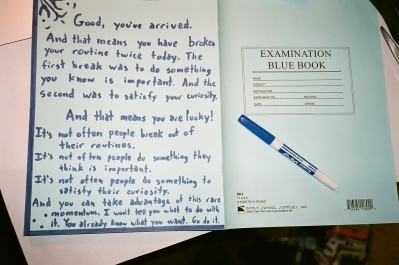 Good, you've arrived.
And that means you have broken
your routine twice today. The
first break was to do something
you know is important. And the
second was to satisfy your curiosity.
And that means you are lucky!
It's not often people break out of
their routines.
It's not often people do something they
think is important.
It's not often people do something to
satisfy their curiosity.
And you can take advantage of this rare
momentum. I won't tell you what to do with
it. You already know what you want. Go do it.
EXAMINATION
BLUE BOOK
NAME
SUBJECT
INSTRUCTOR
DATE